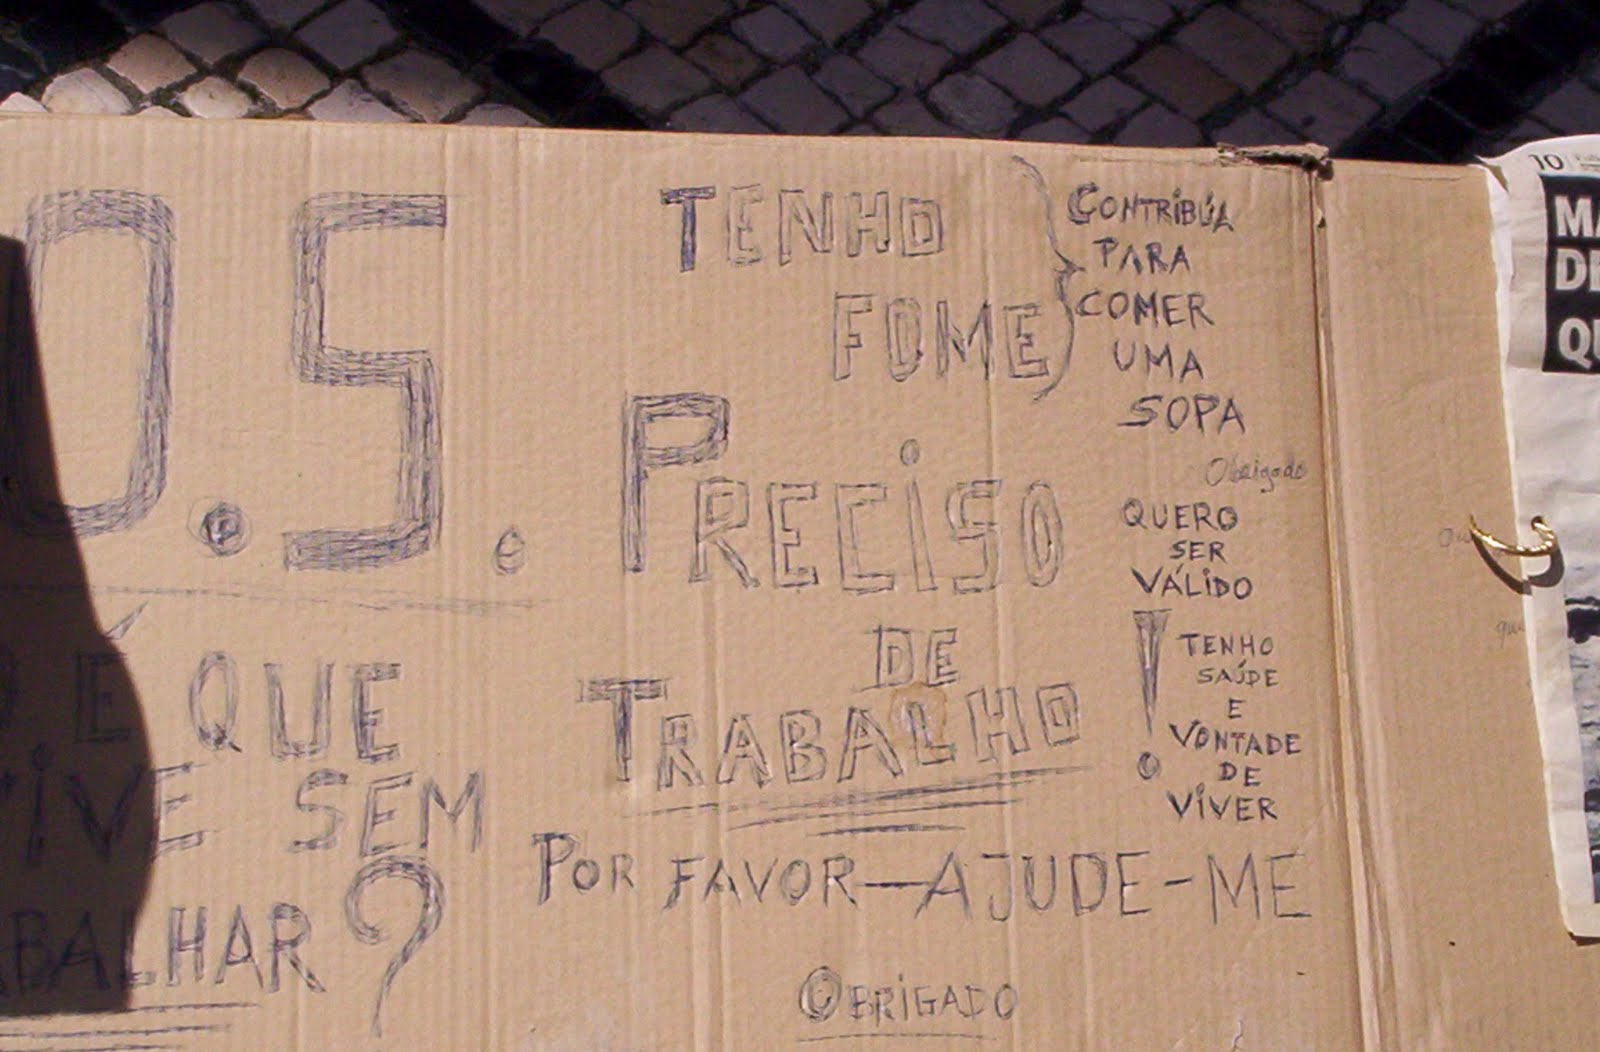 O.S.
É QUE
VIVE SEM
TRABALHAR?
TENHO
FOME
CONTRIBÚA
PARA
COMER
UMA
SOPA
Obrigado
PRECISO
DE
TRABALHO
QUERO
SER
VÁLIDO
!
TENHO
SAÚDE
E
VONTADE
DE
VIVER
POR FAVOR—AJUDE-ME
OBRIGADO
10
MA
DE
QU